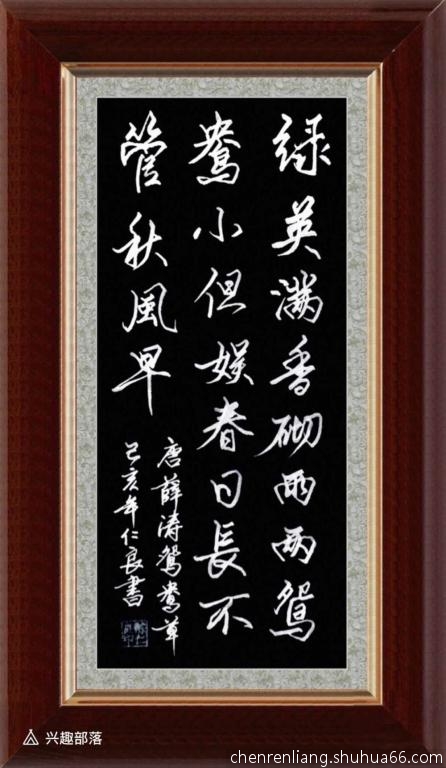 绿英满香砌两两鸳
鸯小但娱春日長不
管秋風早
唐薛涛鸳鸯草
己亥年仁良書
兴趣部落
chenrenliang.shuhua66.com